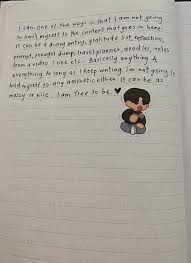 I can. One of the ways is that I am not going
to limit myself to the content that goes in here.
It can be a diary entry, gratitude list, reflection,
prompt, thought dump, travel planner, doodles, notes
from a video I like etc... Basically anything &
everything. As long as I keep writing. I'm not going to
hold myself to any aesthetic either. It can be as
messy or nice... I am free to be.